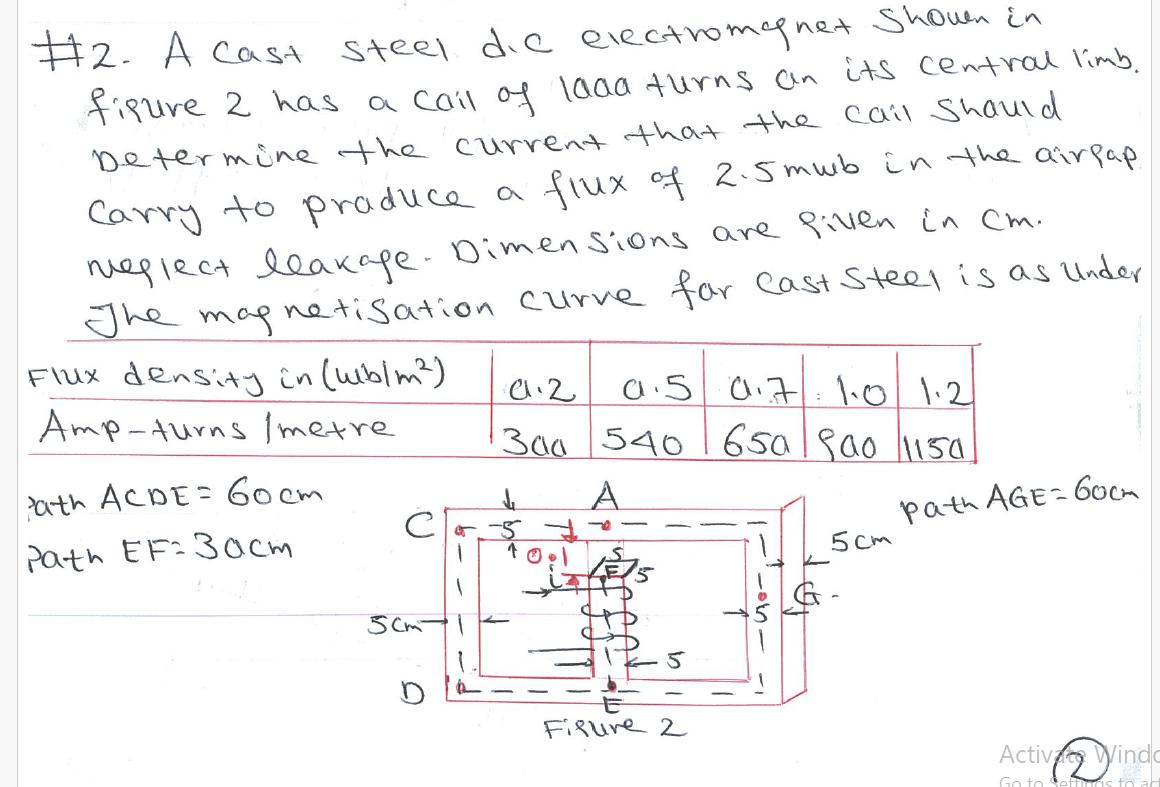 #2. A cast steel d.c electromagnet shown in
figure 2 has a coil of 1000 turns on its central limb.
Determine the current that the coil should
carry to produce a flux of 2.5mwb in the airgap
neglect leakage. Dimensions are given in cm.
The magnetisation curve for cast steel is as under
Flux density in (wb/m²) 0.2 0.5 0.7 1.0 1.2
Amp-turns /metre 300 540 650 900 1150
Path ACDE = 60cm
Path EF = 30cm
path AGE = 60cm
A
C
5
0.1
5
F
5
i
5cm
G
5
5cm
5
D
E
Figure 2
2
Activate Windo
Go to Settings to act